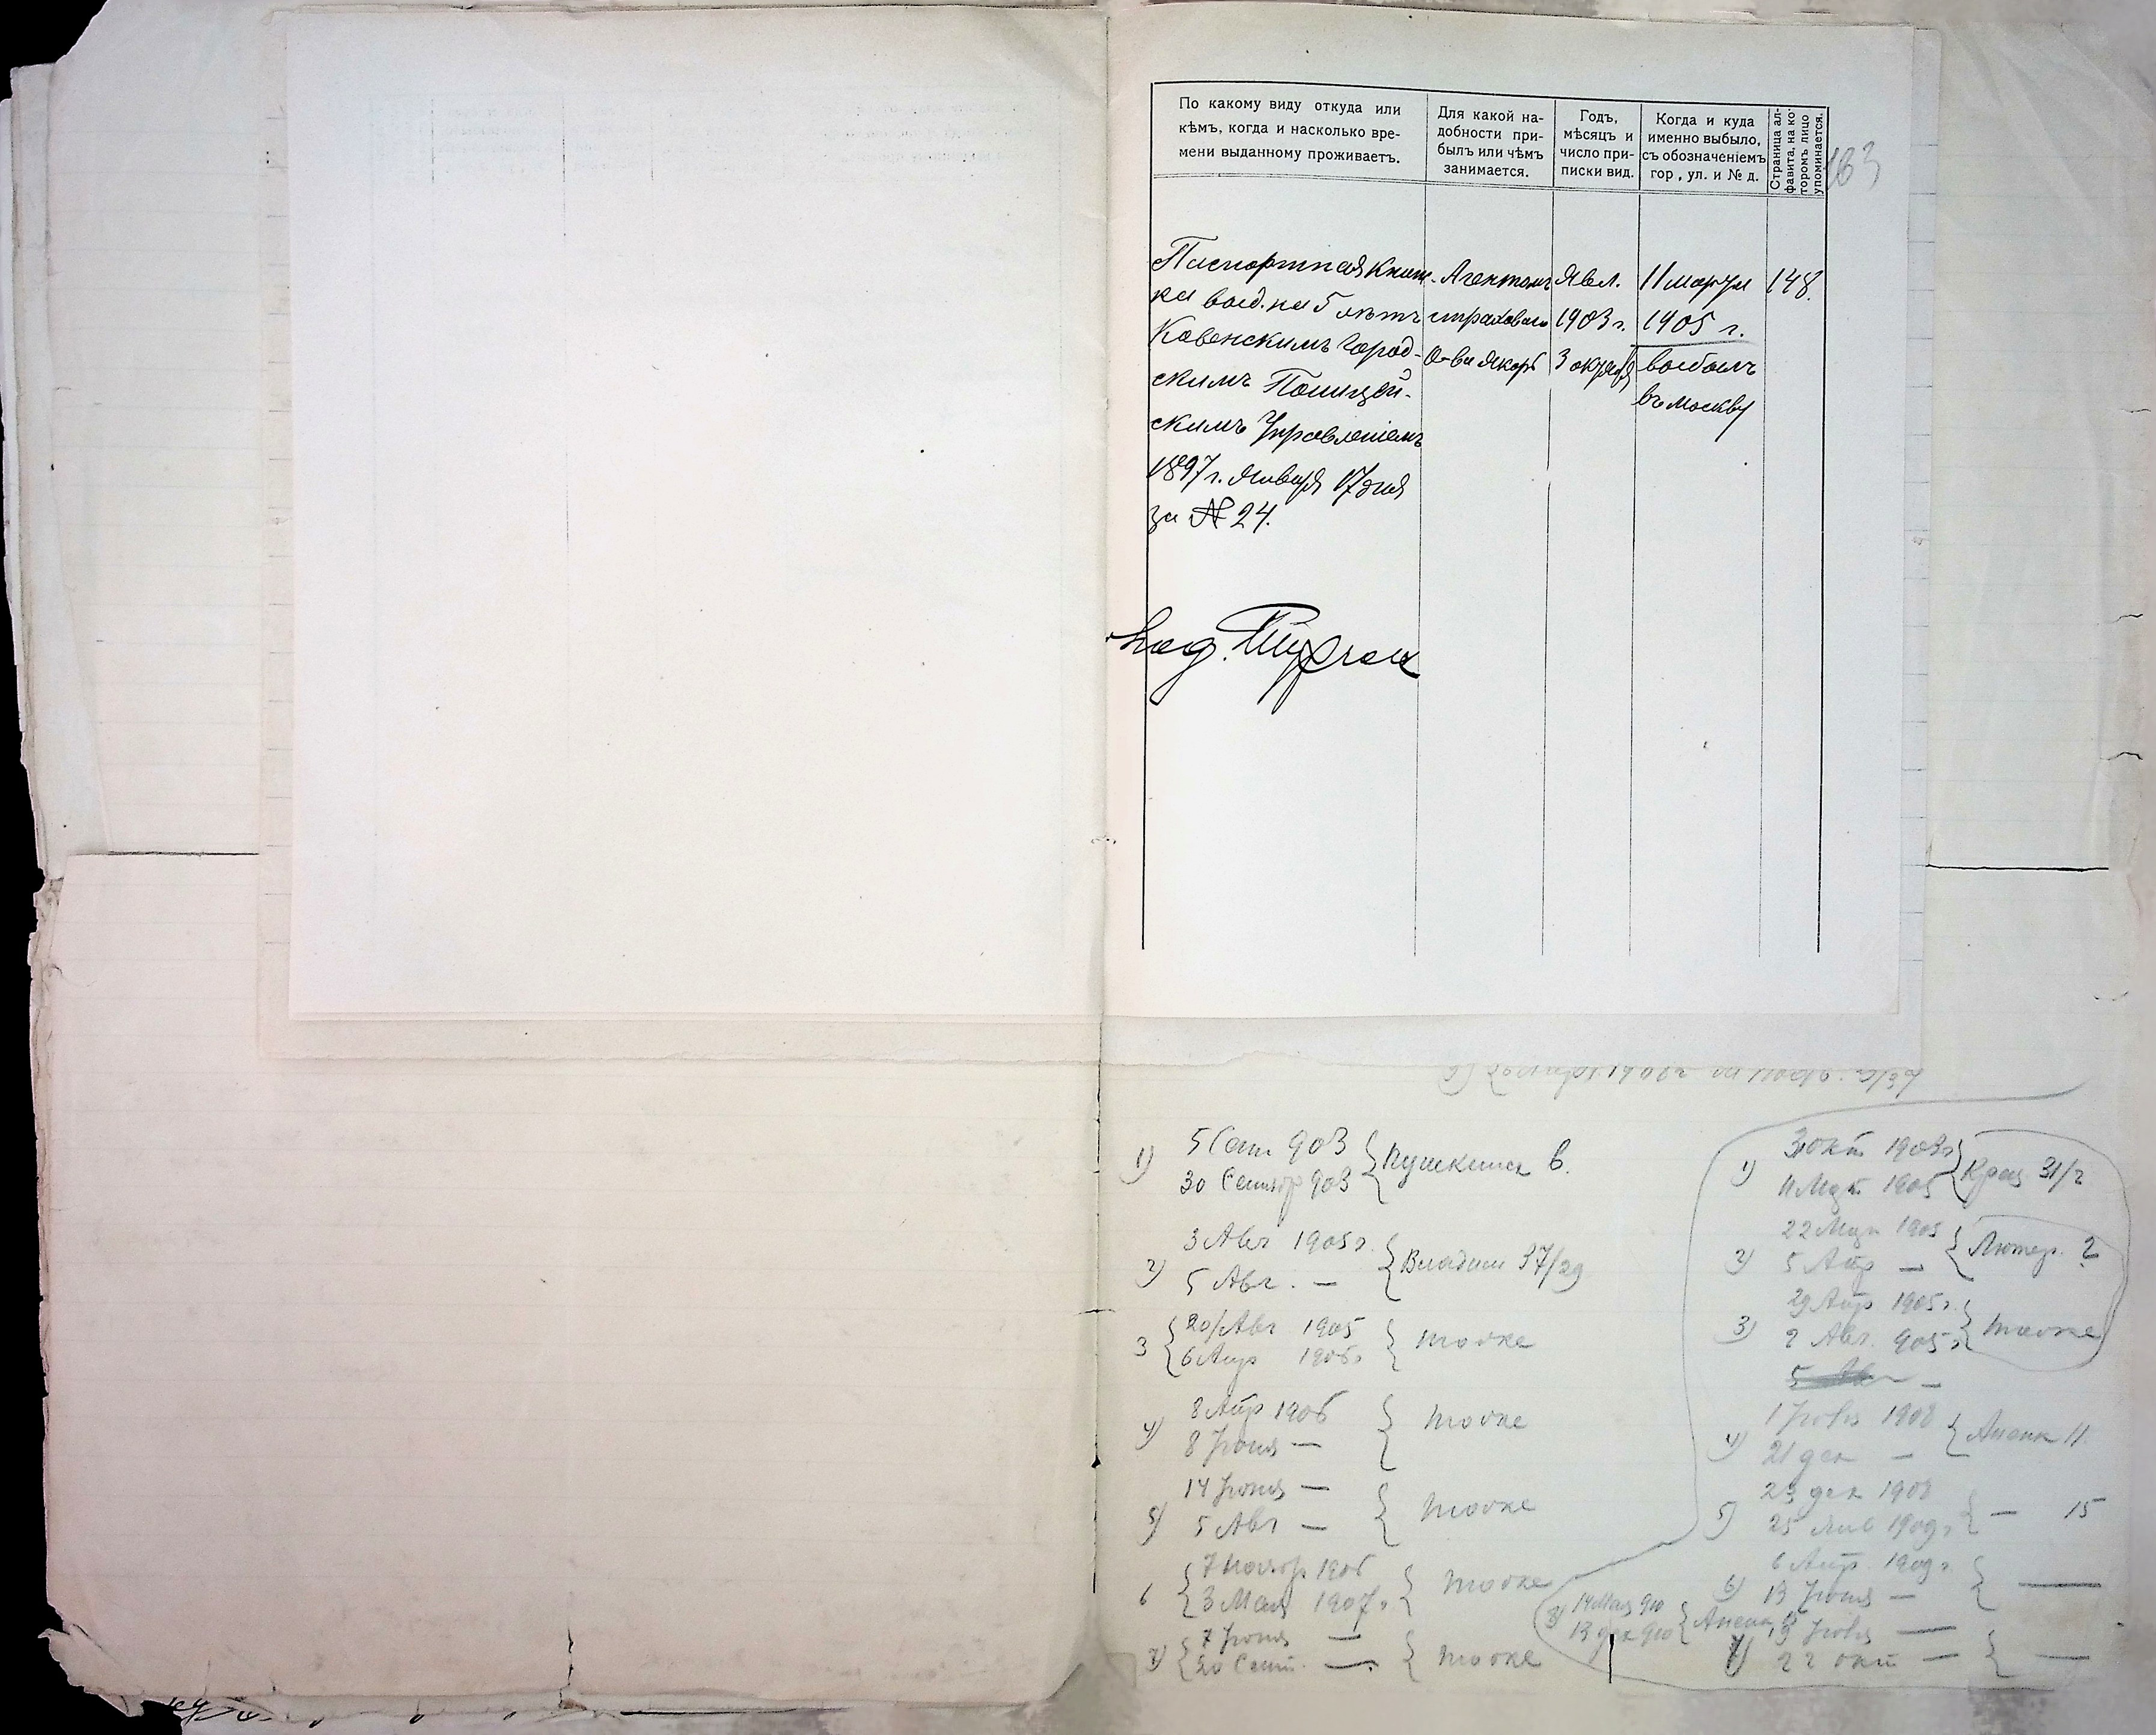 По какому виду откуда или
кѣмъ, когда и насколько вре-
мени выданному проживаетъ.
Для какой на-
добности при-
былъ или чѣмъ
занимается.
Годъ,
мѣсяцъ и
число при-
писки вид.
Когда и куда
именно выбыло,
съ обозначеніемъ
гор., ул. и № д.
Страница ал-
фавита, на ко-
торомъ лицо
упоминается.
163
Паспортная книж-
ка выд. на 5 лѣтъ
Ковенскимъ Город-
скимъ Полицей-
скимъ Управленіемъ
1897 г. Января 17 дня
за № 24.
Агентомъ
страховаго
О-ва Якорь
Явл.
1903 г.
3 октября
11 марта
1905 г.
выбылъ
въ Москву
148.
1) 5 Сент 903
30 Сентяр 903
Пушкинск в.
2) 3 Авг 1905 г.
5 Авг. —
Владим 37/29
3 20/Авг 1905
6 Апр 1906 г.
тоже
4) 8 Апр 1906
8 Іюня —
тоже
5) 14 Іюня —
5 Авг —
тоже
6 7 Ноябр 1906
3 Мая 1907 г.
тоже
7) 7 Іюня —
20 Сент. —
тоже
1) 3 окт 1903 г.
11 Мрт 1905
31/2
2) 22 Мрт 1905
5 Апр —
Лютер. ?
3) 29 Апр 1905 г.
2 Авг. 905 г.
тоже
4) 1 1908
21 дек —
11
5) 23 дек 1908
25 Янв 1909 г.
— 15
6) 6 Апр. 1909 г.
13 Іюня —
—
7) —
22 окт —
—
8) 14 Мая 910
13 дек 910